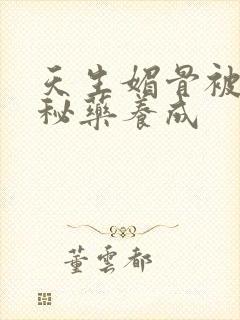 天生媚骨被
秘藥養成
董雲都